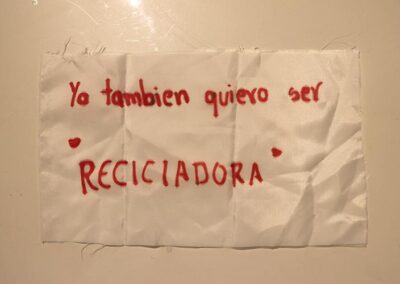 Yo tambien quiero ser
RECICLADORA